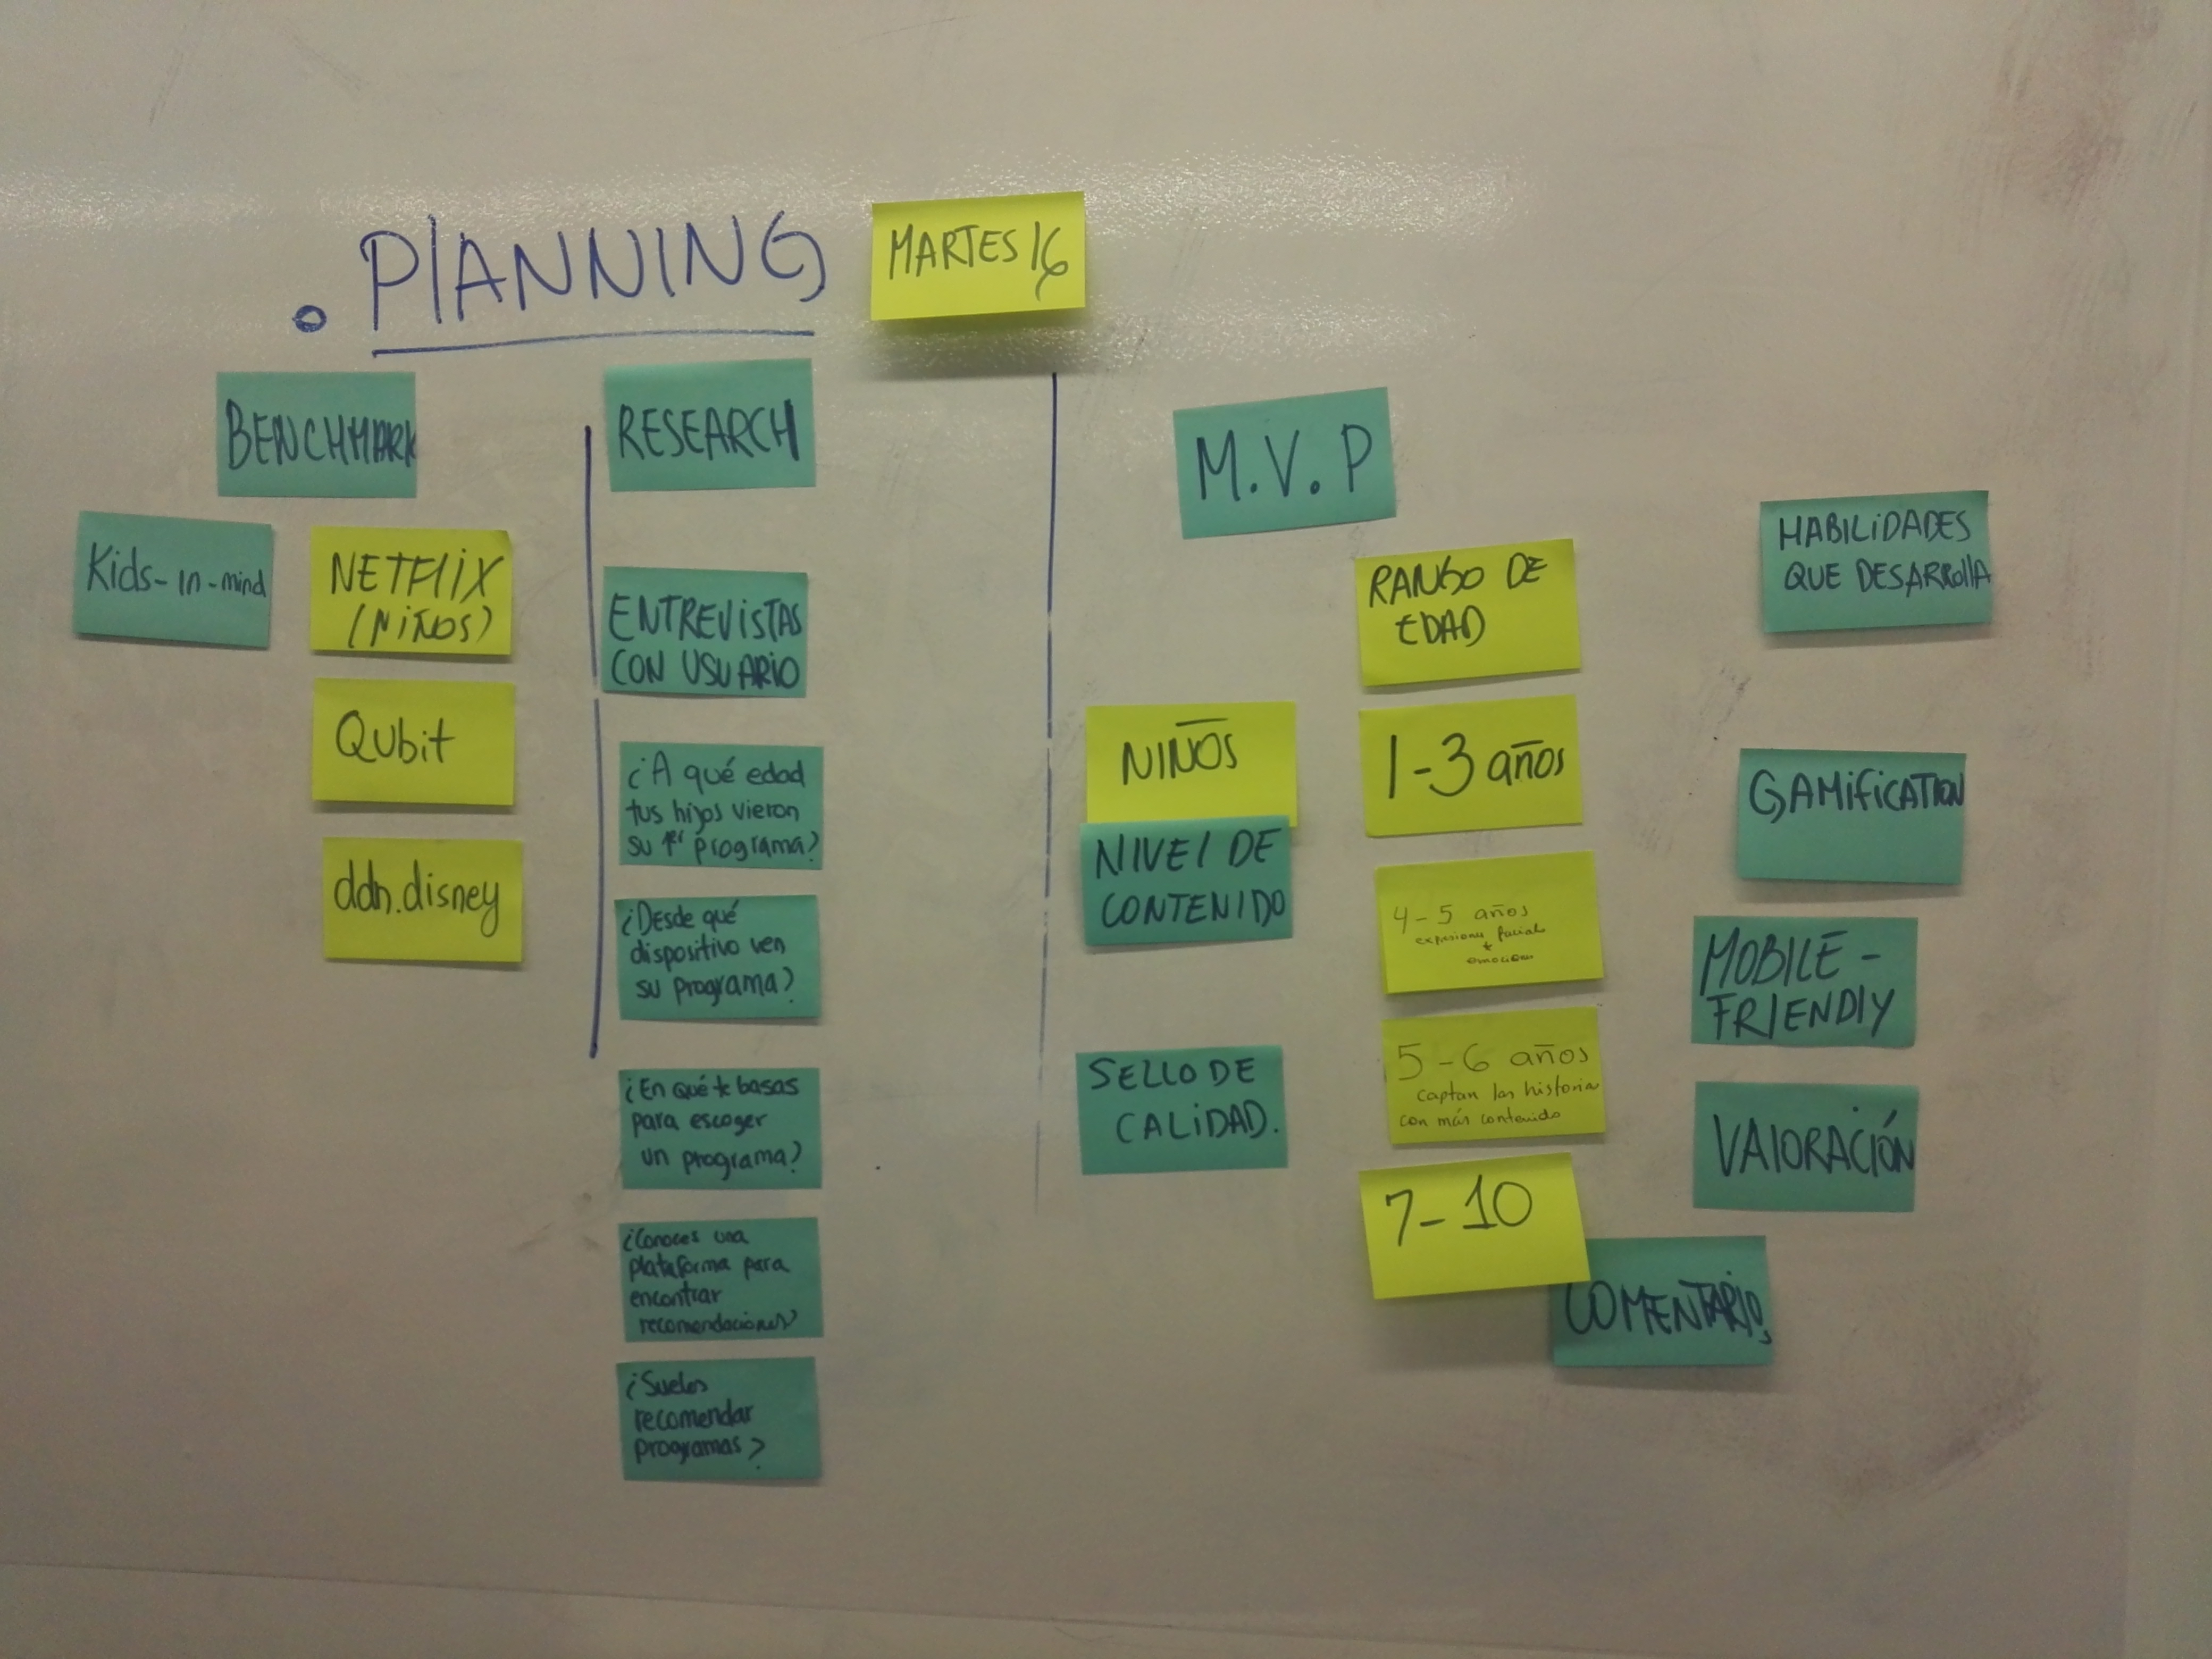 . PLANNING
MARTES 16
BENCHMARK
Kids-in-mind
NETFLIX
(NIÑOS)
Qubit
ddn.disney
RESEARCH
ENTREVISTAS
CON USUARIO
¿A qué edad
tus hijos vieron
su 1er programa?
¿Desde qué
dispositivo ven
su programa?
¿En qué te basas
para escoger
un programa?
¿Conoces una
plataforma para
encontrar
recomendaciones?
¿Sueles
recomendar
programas?
M.V.P
NIÑOS
NIVEL DE
CONTENIDO
SELLO DE
CALIDAD.
RANGO DE
EDAD
1-3 años
4-5 años
facial
+
5-6 años
captan las historias
con más contenido
7-10
HABILIDADES
QUE DESARROLLA
GAMIFICATION
MOBILE-
FRIENDLY
VALORACIÓN
COMENTARIOS